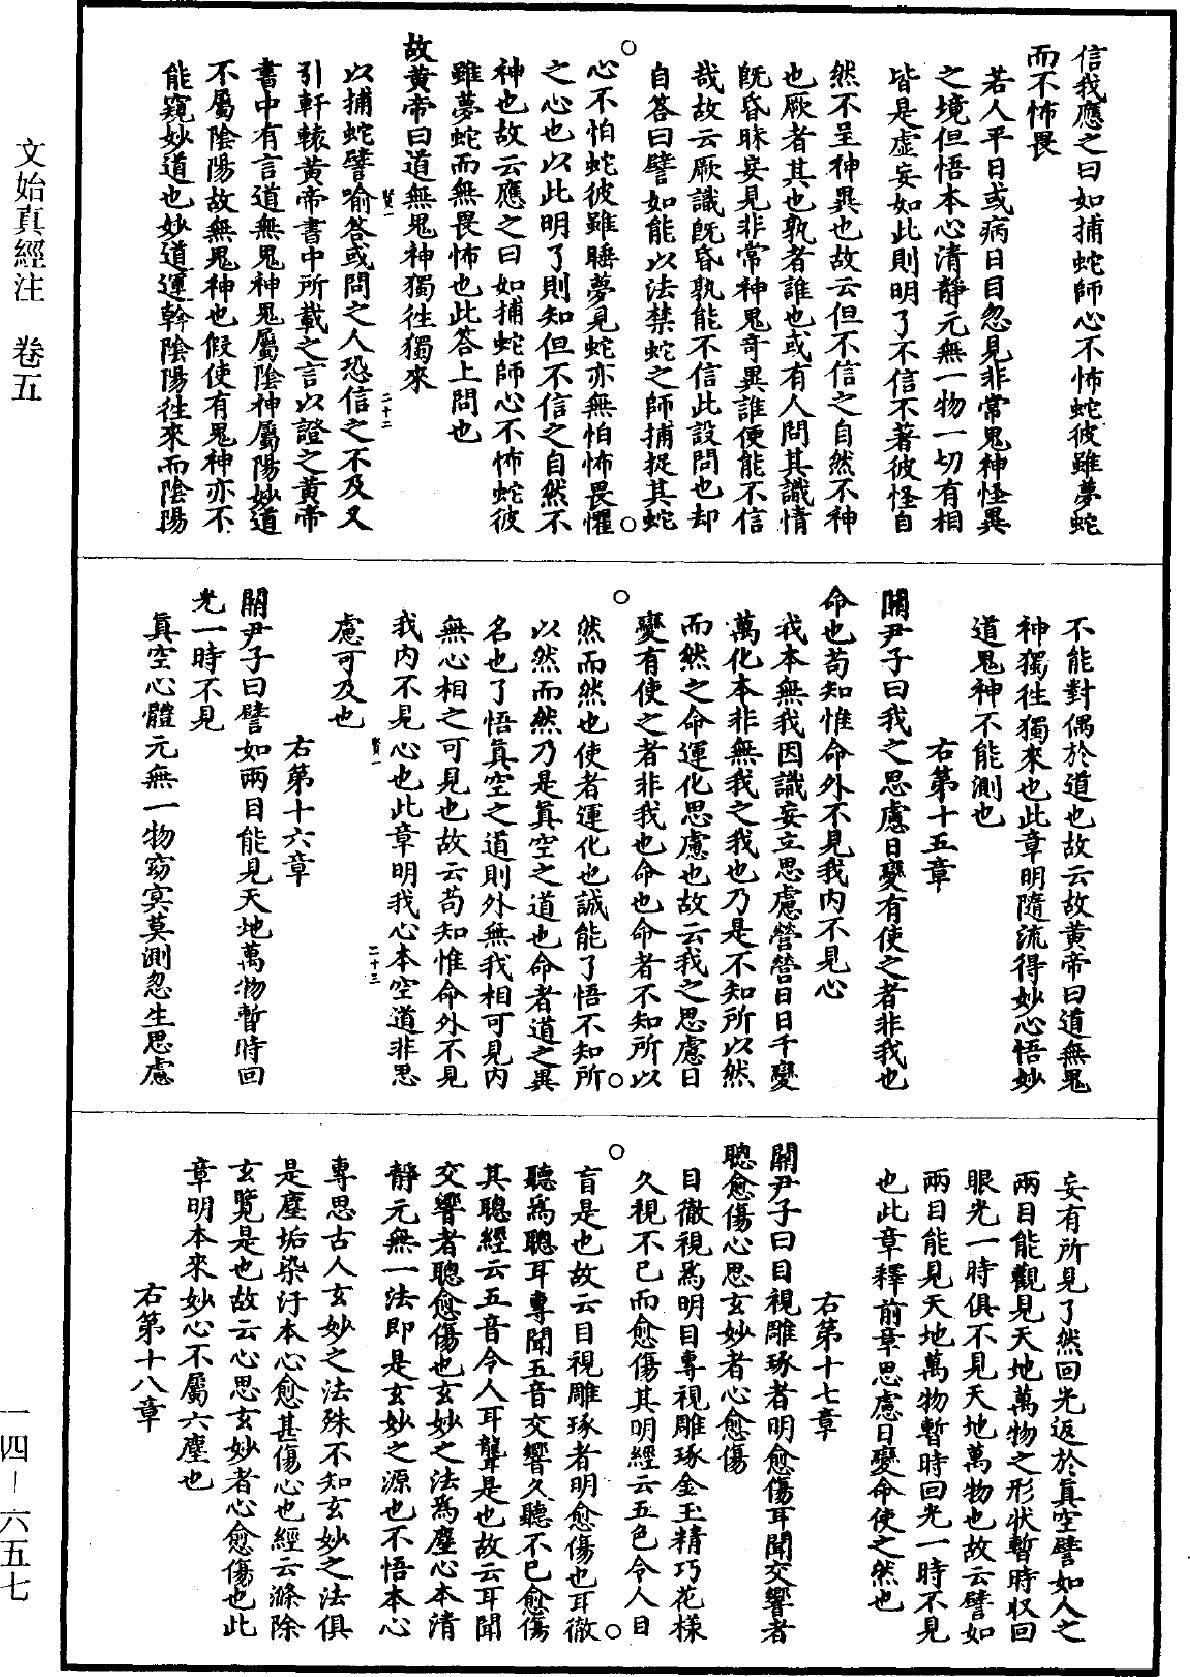 信我應之曰如捕蛇師心不怖蛇彼雖夢蛇
而不怖畏
若人平日或病日目忽見非常鬼神怪異
之境但悟本心清靜元無一物一切有相
皆是虛妄如此則明了不信不著彼怪自
然不呈神異也故云但不信之自然不神
也厥者其也孰者誰也或有人問其識情
旣昏昧妄見非常神鬼奇異誰便能不信
哉故云厥識旣昏孰能不信此設問也却
自答曰譬如能以法禁蛇之師捕捉其蛇
心不怕蛇彼雖睡夢見蛇亦無怕怖畏懼
之心也以此明了則知但不信之自然不
神也故云應之曰如捕蛇師心不怖蛇彼
雖夢蛇而無畏怖也此答上問也
故黄帝曰道無鬼神獨往獨來
賢一
二十二
以捕蛇譬喻答或問之人恐信之不及又
引軒轅黄帝書中所載之言以證之黄帝
書中有言道無鬼神鬼屬陰神屬陽妙道
不屬陰陽故無鬼神也假使有鬼神亦不
能窺妙道也妙道運斡陰陽往來而陰陽
不能對偶於道也故云故黄帝曰道無鬼
神獨往獨來也此章明隨流得妙心悟妙
道鬼神不能測也
右第十五章
關尹子曰我之思慮日變有使之者非我也
命也苟知惟命外不見我内不見心
我本無我因識妄立思慮營營日日千變
萬化本非無我之我也乃是不知所以然
而然之命運化思慮也故云我之思慮日
變有使之者非我也命也命者不知所以
然而然也使者運化也誠能了悟不知所
以然而然乃是眞空之道也命者道之異
名也了悟眞空之道則外無我相可見内
無心相之可見也故云苟知惟命外不見
我内不見心也此章明我心本空道非思
賢一
二十三
慮可及也
右第十六章
關尹子曰譬如兩目能見天地萬物暫時回
光一時不見
眞空心體元無一物窈冥莫測忽生思慮
妄有所見了然回光返於眞空譬如人之
兩目能觀見天地萬物之形狀暫時収回
眼光一時俱不見天地萬物也故云譬如
兩目能見天地萬物暫時回光一時不見
也此章釋前章思慮日變命使之然也
右第十七章
關尹子曰目視雕琢者明愈傷耳聞交響者
聰愈傷心思玄妙者心愈傷
目徹視爲明目專視雕琢金玉精巧花樣
久視不已而愈傷其明經云五色令人目
盲是也故云目視雕琢者明愈傷也耳徹
聽爲聰耳專聞五音交響久聽不已愈傷
其聰經云五音令人耳聾是也故云耳聞
交響者聰愈傷也玄妙之法爲塵心本清
靜元無一法即是玄妙之源也不悟本心
專思古人玄妙之法殊不知玄妙之法俱
是塵垢染汙本心愈甚傷心也經云滌除
玄覽是也故云心思玄妙者心愈傷也此
章明本來妙心不屬六塵也
右第十八章
文始真經注　卷五
一四－六五七